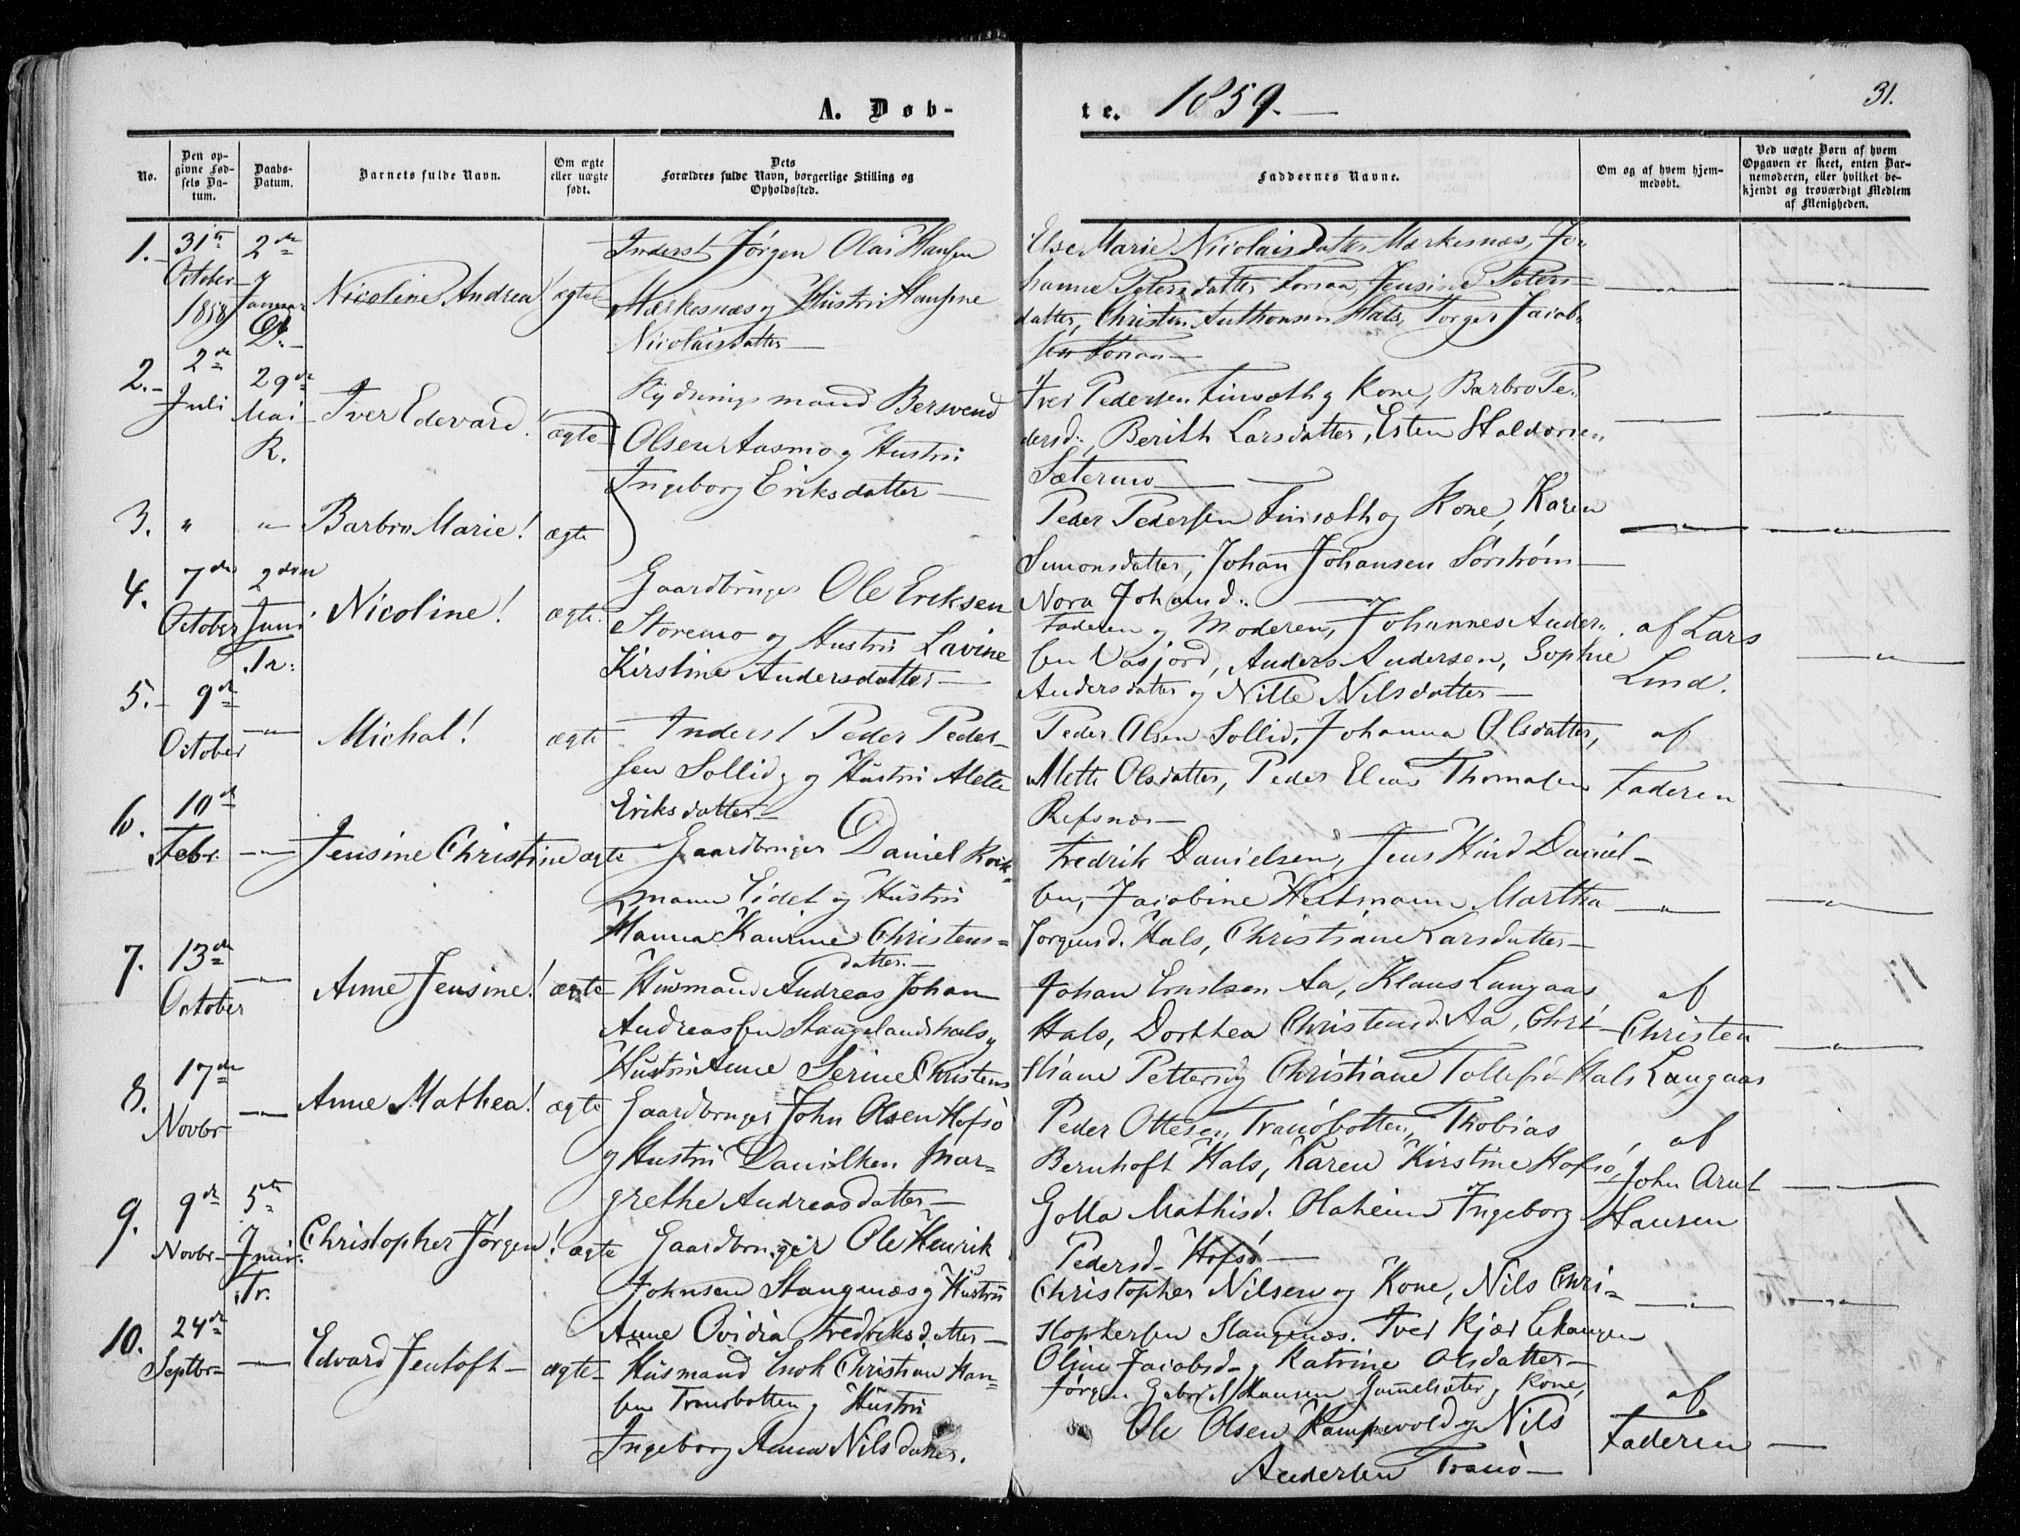 A. Døb-
te. 1859.
31.
No.
Den op-
givne Fød-
sels Da-
tum.
Daabs-
Datum.
Barnets fulde Navn.
Om ægte
eller uægte
født.
Dets
Forældres fulde Navn, borgerlige Stilling og
Opholdssted.
Faddernes Navne.
Om og af hvem hjem-
medøbt.
Ved uægte Børn af hvem
Opgaven er skeet, enten Bar-
nemoderen, eller hvilket be-
kjendt og troværdigt Medlem
af Menigheden.
1.
31te
October
1858
2den
Januar
Nicoline Andrea
ægte
Inderst Jørgen Olai Hansen
Mærkesnæs og Hustru Hansine
Nicolaisdatter
Else Marie Nicolaisdatter Mærkesnæs, Jo-
hanne Petersdatter Forsaa, Jensine Peters-
datter, Christen Anthonsen Hals, Torger Jacob-
sen Forsaa
2.
2de
Juli
29de
Mai
R.
Iver Edevard!
ægte
Rydningsmand Bersvend
Olsen Aasmo og Hustru
Ingeborg Eriksdatter
Iver Pedersen Finsæth og Kone, Barbro Pe-
dersd., Berith Larsdatter, Esten Haldorsen
Sætermo
3.
Barbro Marie!
ægte
Peder Pedersen Finsæth og Kone, Karen
Simonsdatter, Johan Johansen Sørstrøm
Nora Johansd.
4.
7de
October
2den
Juni
Tr.
Nicoline!
ægte.
Gaardbruger Ole Eriksen
Storemo og Hustru Lavine
Kirstine Andersdatter
Faderen og Moderen, Johannes Ander-
sen Vasjord, Anders Andersen, Sophie
Andersdatter og Nille Nilsdatter
af Lars
Lind.
5.
9de
October
Michal!
ægte
Inderst Peder Peder-
sen Sollid og Hustru Alette
Eriksdatter
Peder Olsen Sollid, Johanna Olsdatter,
Mette Olsdatter, Peder Elias Thomasen
Refsnæs
af
Faderen
6.
10de
Febr.
Jensine Christine
ægte
Gaardbruger Daniel
mann Eidet og Hustru
Hanna Kavrine Christens-
datter.
Fredrik Danielsen, Jens Hind Daniel-
sen, Jacobine Heitmann Martha
Jørgensd. Hals, Christiane Larsdatter
7.
13de
October
Anne Jensine!
ægte
Husmand Andreas Johan
Andreassen Stangelandshals og
Hustru Anne Serine Christens
Johan Erntsen Aa, Klaus Langaas
Hals, Dorthea Christensd. Aa, Chri-
stiane Pettersd. og Christiane Tollefsd. Hals
af
Christen
Langaas
8.
17de
Novbr
Anne Mathea!
ægte
Gaardbruger John Olsen Hofsø
og Hustru Danilken Mar-
grethe Andreasdatter
Peder Ottesen Tranøbotten, Thobias
Bernhoft Hals, Karen Kirstine Hofsø,
Golla Mathisd. Olaheim Ingeborg
Pedersd. Hofsø
af
John Arnt
Hansen
9.
9de
Novbr
5te
Juni
Tr.
Christopher Jørgen!
ægte
Gaardbruger Ole Henrik
Johnsen Stangnæs og Hustru
Anne Ovidia Fredriksdatter
Christopher Nilsen og Kone, Nils Chri-
stophersen Stangnæs. Iver Kjær Lekangen
Oline Jacobsd. og Katrine Olsdatter
10.
24de
Septbr
Edvard Jentoft
ægte
Husmand Enok Christian Han-
sen Tranøbotten og Hustru
Ingeborg Anna Nilsdatter.
Jørgen Gabriel Hansen Gammelsæter og Kone,
Ole Olsen Kampevold og Nils
Andersen Tranø
af
Faderen